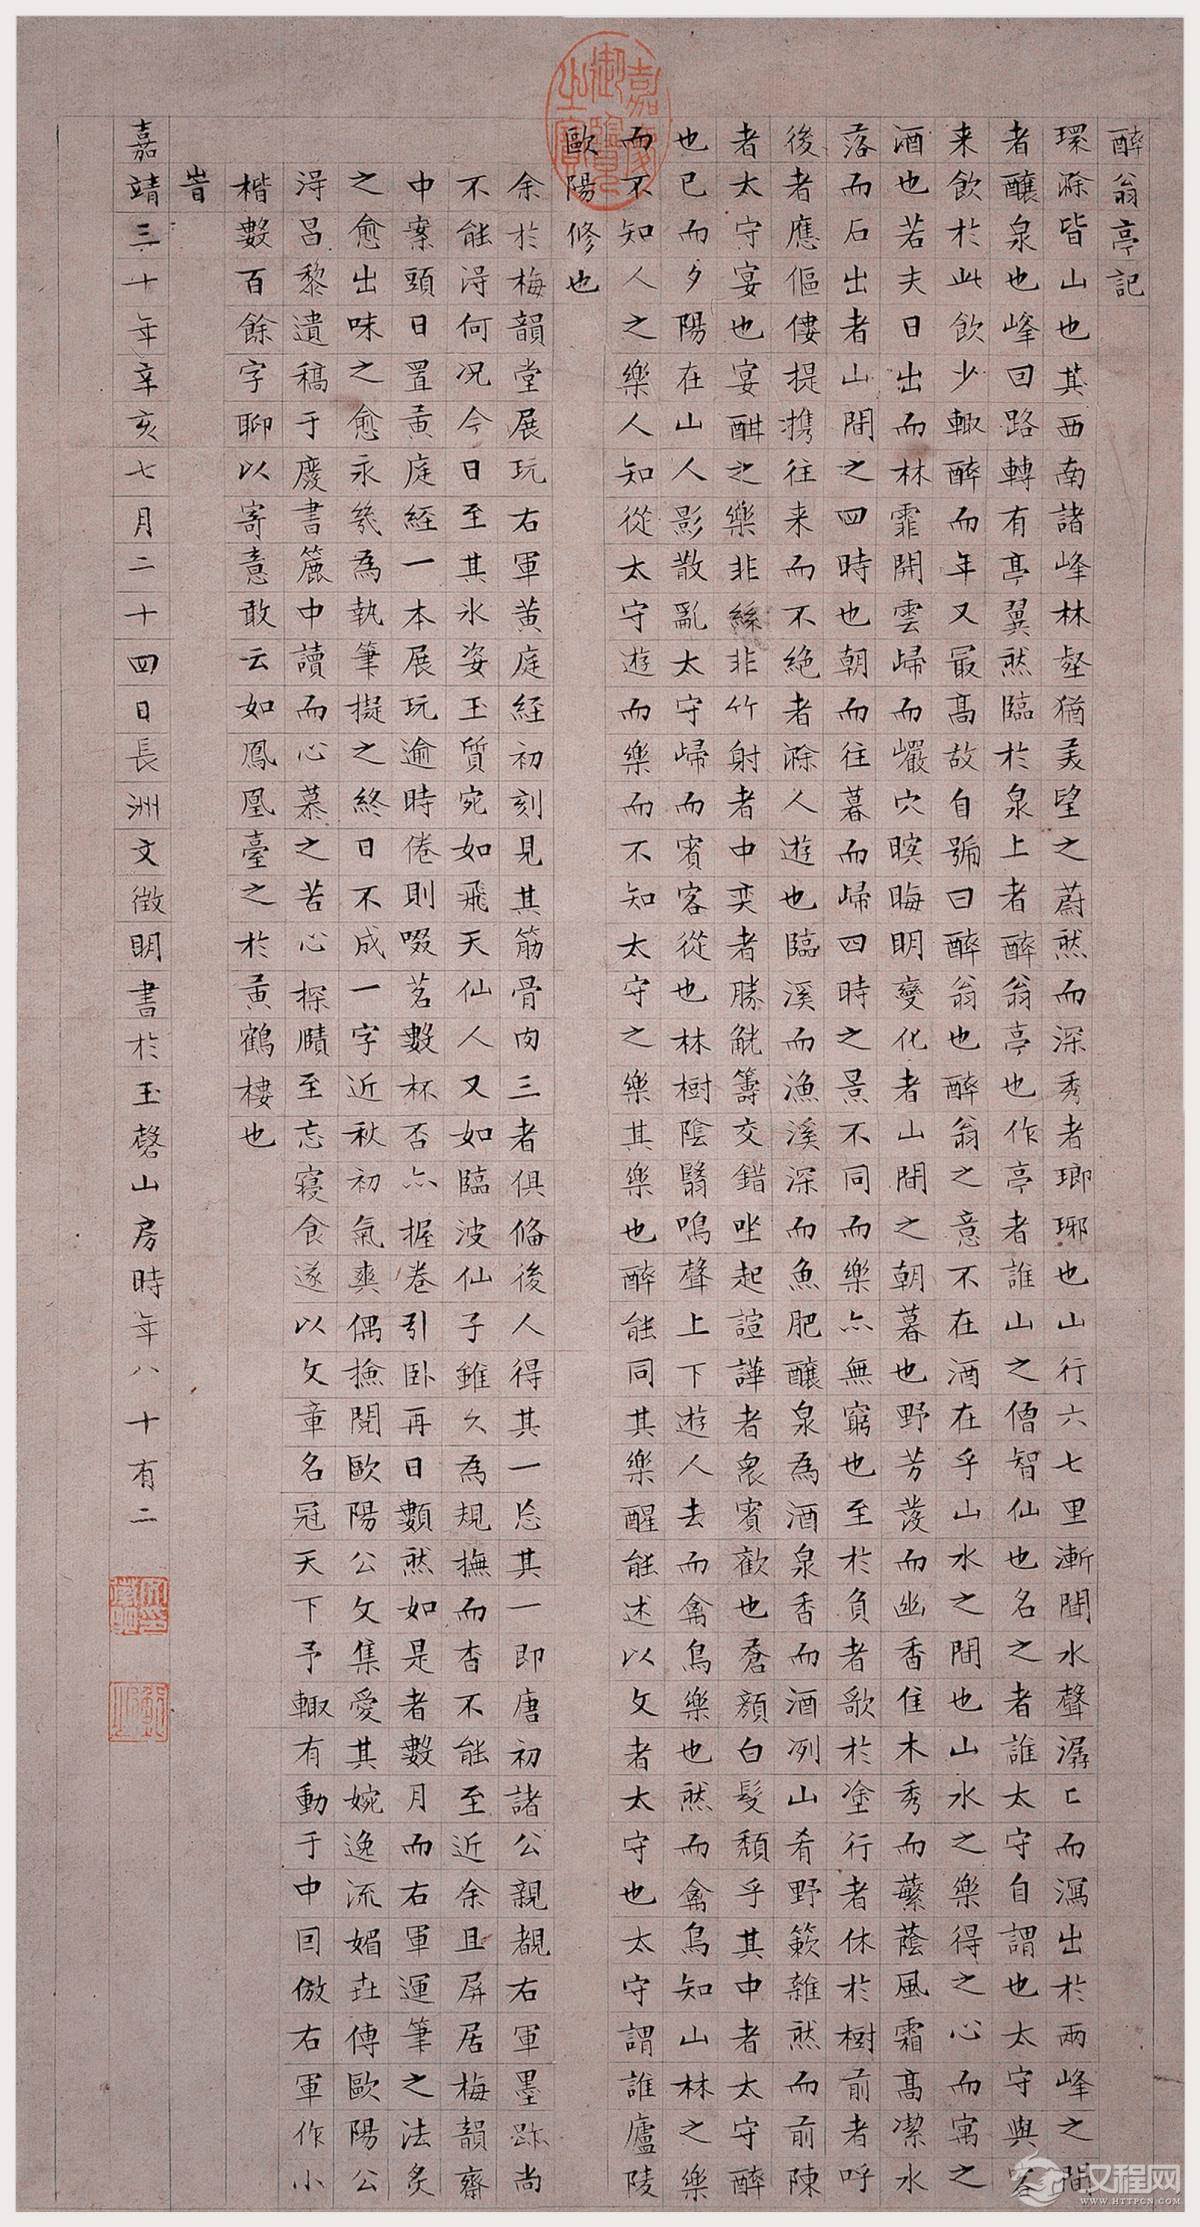 醉翁亭記
環滁皆山也其西南諸峰林壑猶美望之蔚然而深秀者瑯琊也山行六七里漸聞水聲潺〻而瀉出於兩峰之間
者釀泉也峰回路轉有亭翼然臨於泉上者醉翁亭也作亭者誰山之僧智仙也名之者誰太守自謂也太守與客
来飲於此飲少輙醉而年又最高故自號曰醉翁也醉翁之意不在酒在乎山水之間也山水之樂得之心而寓之
酒也若夫日出而林霏開雲歸而巖穴暝晦明變化者山間之朝暮也野芳發而幽香佳木秀而蘩蔭風霜高潔水
落而石出者山間之四時也朝而往暮而歸四時之景不同而樂亦無窮也至於負者歌於塗行者休於樹前者呼
後者應傴僂提攜往来而不絕者滁人遊也臨溪而漁溪深而魚肥釀泉為酒泉香而酒冽山肴野蔌雜然而前陳
者太守宴也宴酣之樂非絲非竹射者中奕者勝觥籌交錯坐起諠譁者衆賓歡也蒼顏白髮頹乎其中者太守醉
也已而夕陽在山人影散亂太守歸而賓客從也林樹陰翳鳴聲上下遊人去而禽鳥樂也然而禽鳥知山林之樂
而不知人之樂人知從太守遊而樂而不知太守之樂其樂也醉能同其樂醒能述以文者太守也太守謂誰廬陵
歐陽修也
余於梅韻堂展玩右軍黄庭経初刻見其筋骨肉三者俱俻後人得其一忘其一即唐初諸公親覩右軍墨跡尚
不能淂何況今日至其冰姿玉質宛如飛天仙人又如臨波仙子雖久為規撫而杳不能至近余且屏居梅韻齋
中案頭日置黄庭経一本展玩逾時倦則啜茗數杯否亦握卷引卧再日數然如是者數月而右軍運筆之法炙
之愈出味之愈永幾為執筆擬之終日不成一字近秋初氣爽偶撿閱歐陽公文集愛其婉逸流媚並傳歐陽公
淂昌黎遺稿于慶書簏中讀而心慕之苦心探賾至忘寢食遂以文章名冠天下予輙有動于中囙倣右軍作小
楷數百餘字聊以寄意敢云如鳳凰臺之於黄鶴樓也
旹
嘉靖三十年辛亥七月二十四日長洲文徵明書於玉磬山房時年八十有二
嘉慶御覽之寶
汉程网
WWW.HTTPCN.COM